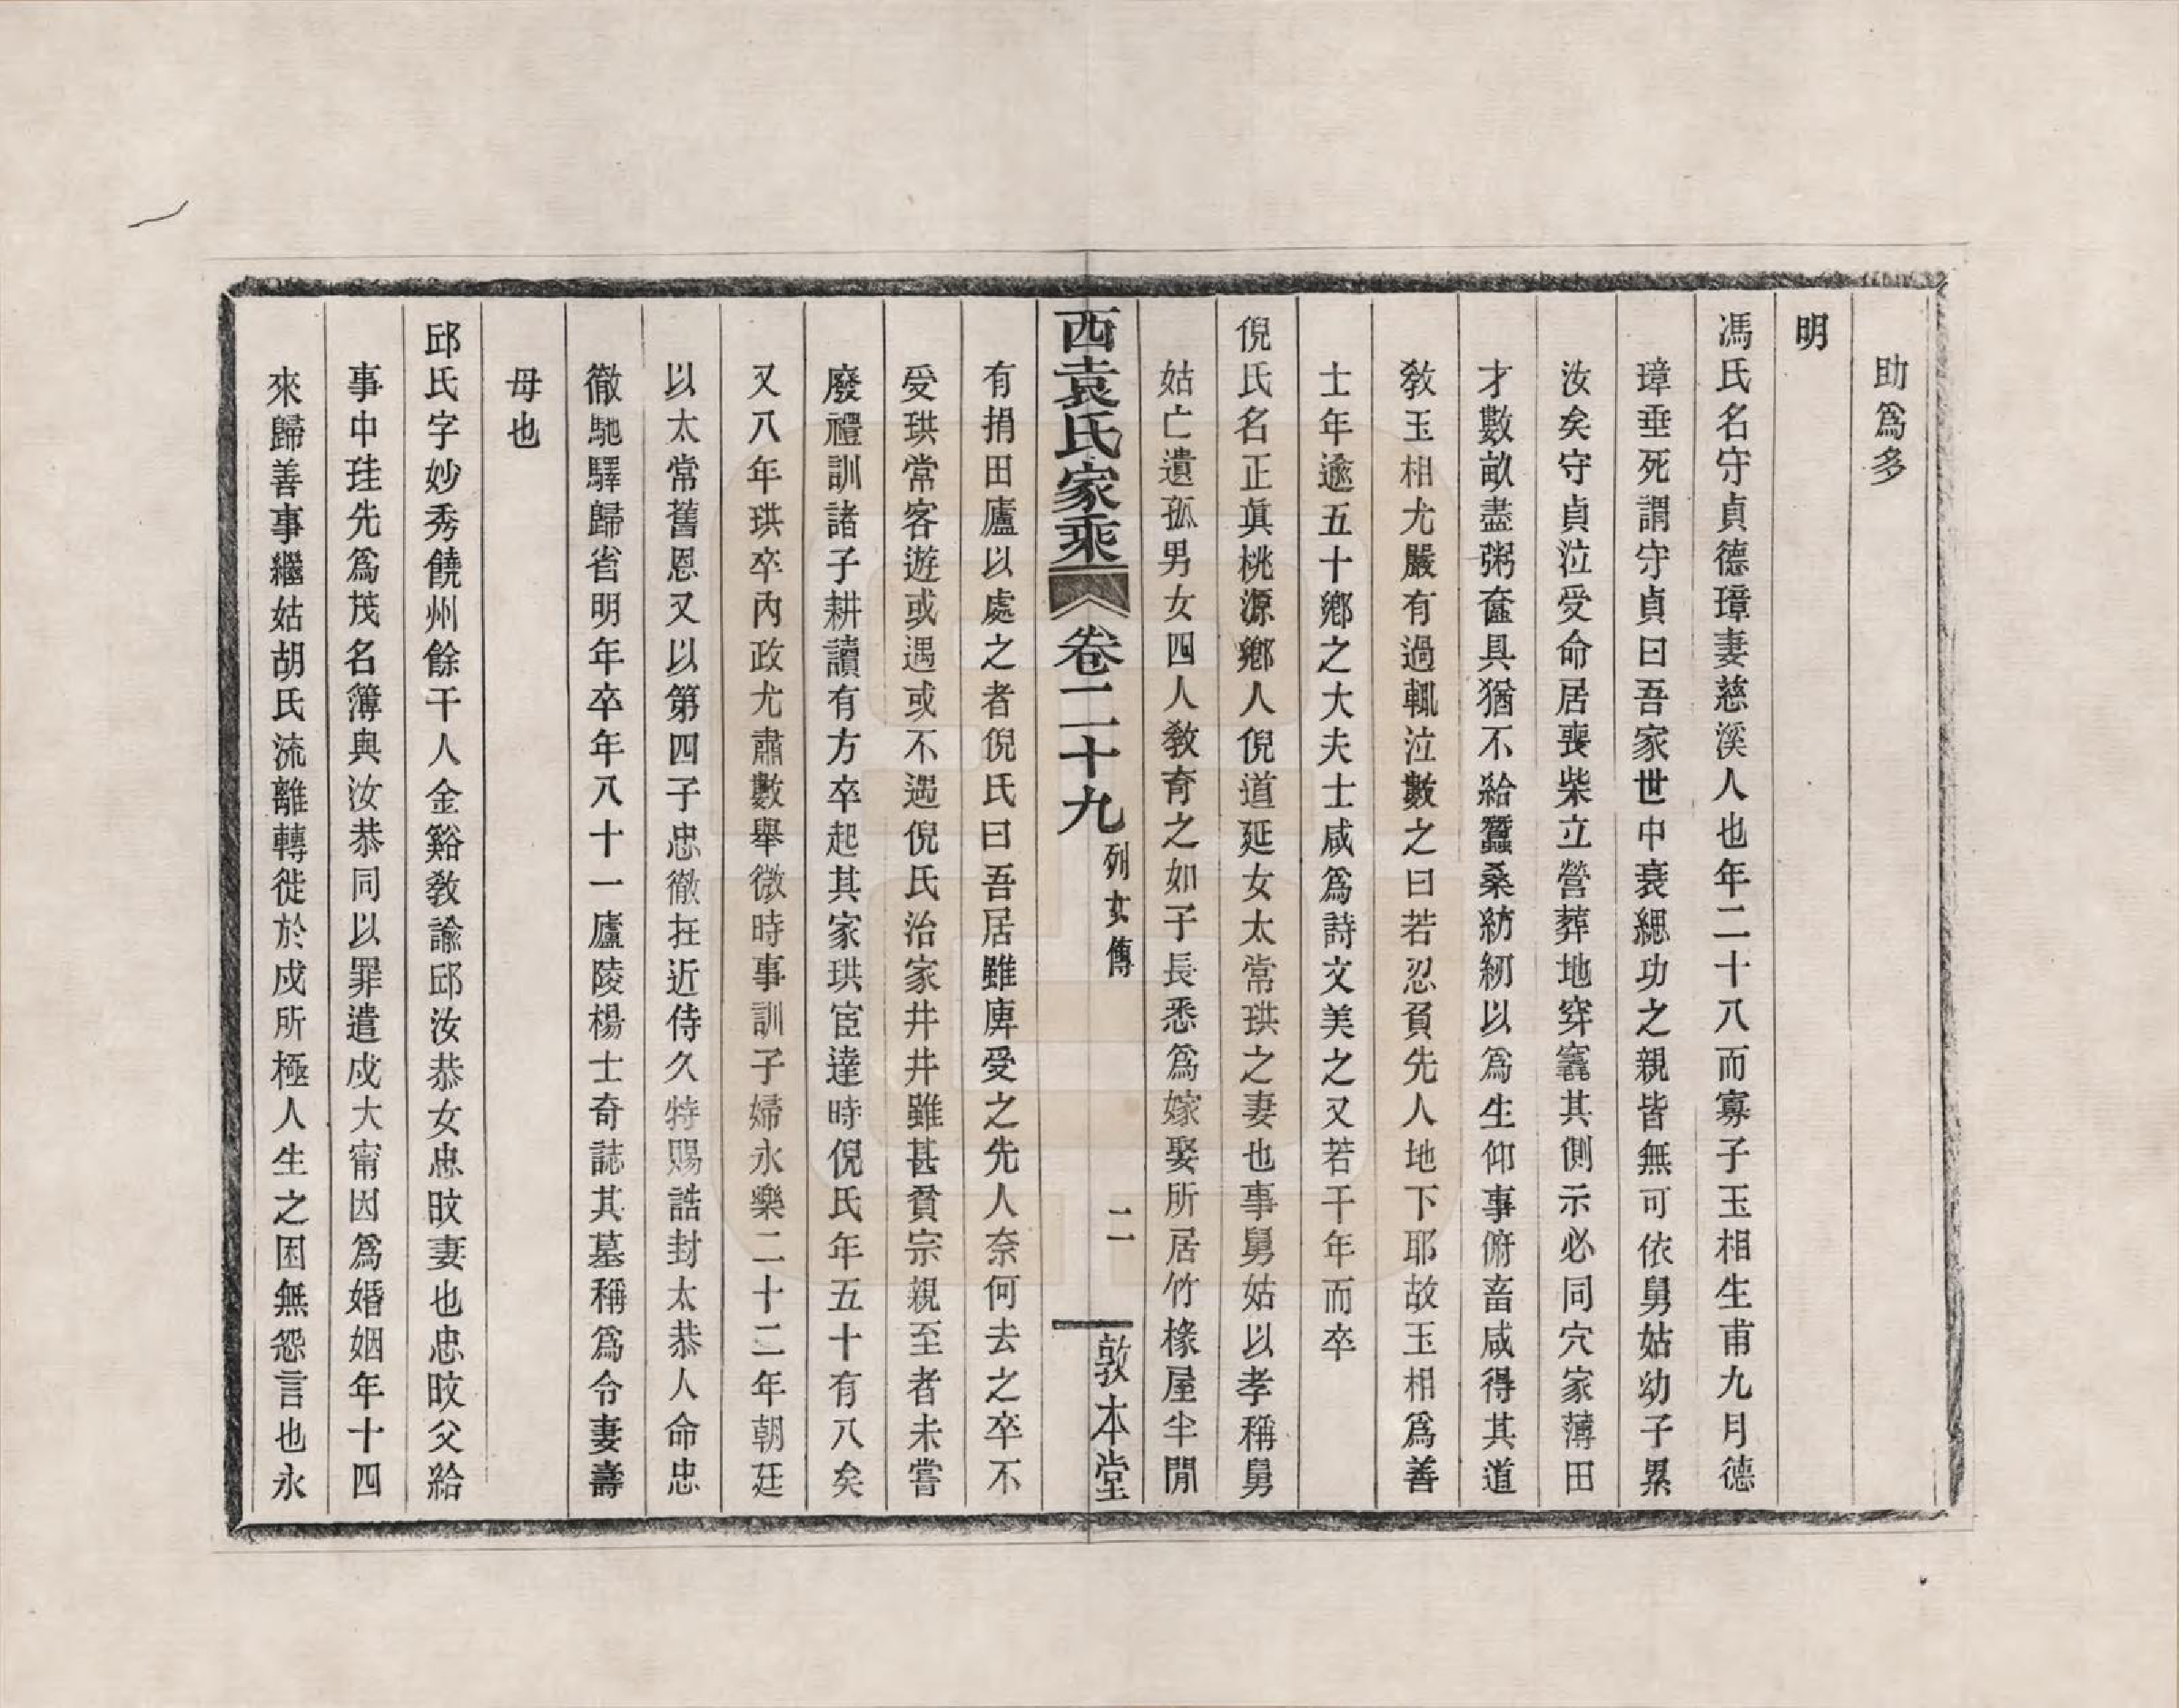 助爲多
明
馮氏名守貞德璋妻慈溪人也年二十八而寡子玉相生甫九月德
璋垂死謂守貞曰吾家世中衰緦功之親皆無可依舅姑幼子累
汝矣守貞泣受命居喪柴立營葬地穿窀其側示必同穴家薄田
才數畝盡粥奩具猶不給蠶桑紡紉以爲生仰事俯畜咸得其道
敎玉相尤嚴有過輒泣數之曰若忍負先人地下耶故玉相爲善
士年逾五十鄕之大夫士咸爲詩文美之又若干年而卒
倪氏名正眞桃源鄕人倪道延女太常珙之妻也事舅姑以孝稱舅
姑亡遺孤男女四人敎育之如子長悉爲嫁娶所居竹椽屋半閒
西袁氏家乘 卷二十九 列女傳 二 敦本堂
有捐田廬以處之者倪氏曰吾居雖庳受之先人奈何去之卒不
受珙常客遊或遇或不遇倪氏治家井井雖甚貧宗親至者未嘗
廢禮訓諸子耕讀有方卒起其家珙宦達時倪氏年五十有八矣
又八年珙卒內政尤肅數舉微時事訓子婦永樂二十二年朝廷
以太常舊恩又以第四子忠徹在近侍久特賜誥封太恭人命忠
徹馳驛歸省明年卒年八十一廬陵楊士奇誌其墓稱爲令妻壽
母也
邱氏字妙秀饒州餘干人金谿敎諭邱汝恭女忠旼妻也忠旼父給
事中珪先爲茂名簿與汝恭同以罪遣戍大甯因爲婚姻年十四
來歸善事繼姑胡氏流離轉徙於戍所極人生之困無怨言也永